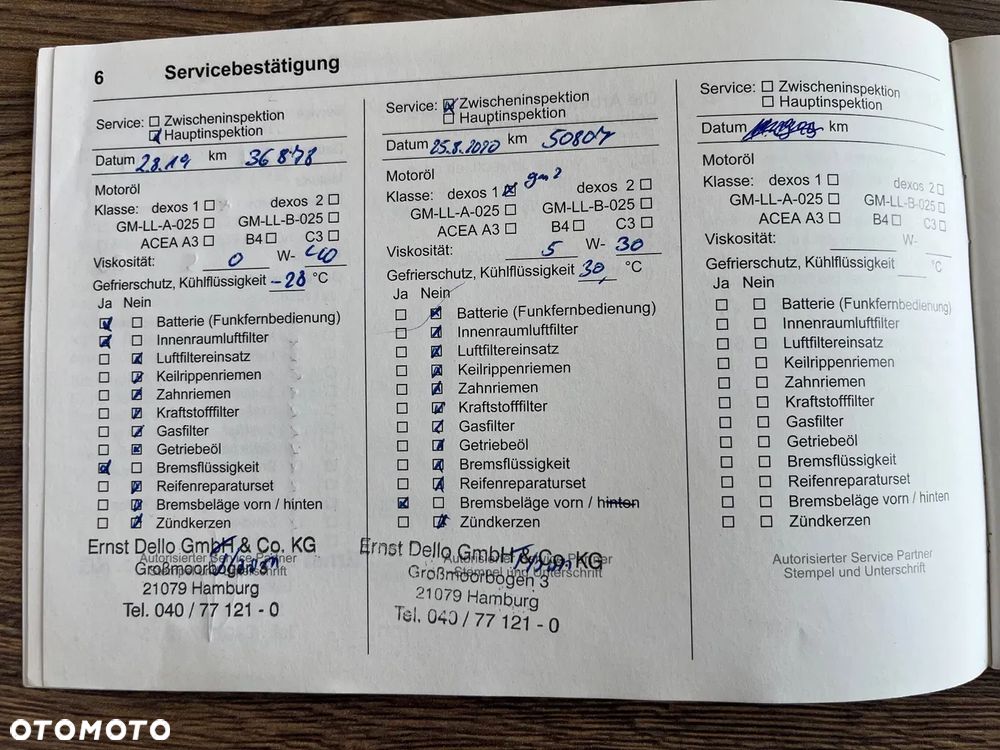 6 Servicebestätigung
Service: ☐ Zwischeninspektion
☑ Hauptinspektion
Datum 2.8.19 km 36878
Motoröl
Klasse: dexos 1 ☐ dexos 2 ☐
GM-LL-A-025 ☐ GM-LL-B-025 ☐
ACEA A3 ☐ B4 ☐ C3 ☐
Viskosität: 0 W- 40
Gefrierschutz, Kühlflüssigkeit -28 °C
Ja Nein
☑ ☐ Batterie (Funkfernbedienung)
☑ ☐ Innenraumluftfilter
☐ ☑ Luftfiltereinsatz
☐ ☑ Keilrippenriemen
☐ ☑ Zahnriemen
☐ ☑ Kraftstofffilter
☐ ☑ Gasfilter
☐ ☑ Getriebeöl
☑ ☐ Bremsflüssigkeit
☐ ☑ Reifenreparaturset
☐ ☑ Bremsbeläge vorn / hinten
☐ ☑ Zündkerzen
Ernst Dello GmbH & Co. KG
Autorisierter Service Partner
Großmoorbogen
Stempel und Unterschrift
21079 Hamburg
Tel. 040 / 77 121 - 0
Service: ☑ Zwischeninspektion
☐ Hauptinspektion
Datum 25.8.2020 km 50807
Motoröl
gm2
Klasse: dexos 1 ☑ dexos 2 ☐
GM-LL-A-025 ☐ GM-LL-B-025 ☐
ACEA A3 ☐ B4 ☐ C3 ☐
Viskosität: 5 W- 30
Gefrierschutz, Kühlflüssigkeit 30, °C
Ja Nein
☐ ☑ Batterie (Funkfernbedienung)
☐ ☑ Innenraumluftfilter
☐ ☑ Luftfiltereinsatz
☐ ☑ Keilrippenriemen
☐ ☑ Zahnriemen
☐ ☑ Kraftstofffilter
☐ ☑ Gasfilter
☐ ☑ Getriebeöl
☐ ☑ Bremsflüssigkeit
☐ ☑ Reifenreparaturset
☑ ☐ Bremsbeläge vorn / hinten
☐ ☑ Zündkerzen
Ernst Dello GmbH & Co. KG
Autorisierter Service Partner
Großmoorbogen 3
Stempel und Unterschrift
21079 Hamburg
Tel. 040 / 77 121 - 0
Service: ☐ Zwischeninspektion
☐ Hauptinspektion
Datum km
Motoröl
Klasse: dexos 1 ☐ dexos 2 ☐
GM-LL-A-025 ☐ GM-LL-B-025 ☐
ACEA A3 ☐ B4 ☐ C3 ☐
Viskosität: W-
Gefrierschutz, Kühlflüssigkeit °C
Ja Nein
☐ ☐ Batterie (Funkfernbedienung)
☐ ☐ Innenraumluftfilter
☐ ☐ Luftfiltereinsatz
☐ ☐ Keilrippenriemen
☐ ☐ Zahnriemen
☐ ☐ Kraftstofffilter
☐ ☐ Gasfilter
☐ ☐ Getriebeöl
☐ ☐ Bremsflüssigkeit
☐ ☐ Reifenreparaturset
☐ ☐ Bremsbeläge vorn / hinten
☐ ☐ Zündkerzen
Autorisierter Service Partner
Stempel und Unterschrift
OTOMOTO